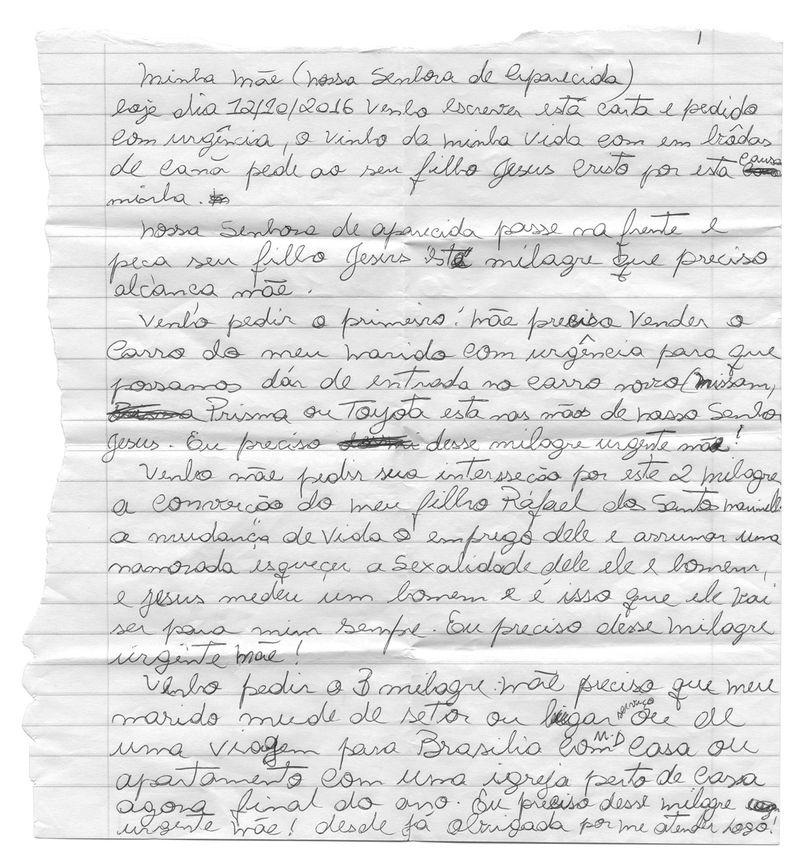 1
Minha Mãe (Nossa Senhora de Aparecida)
hoje dia 12/10/2016 venho escrever está carta e pedido
com urgência, o vinho da minha vida com em bôdas
de canã pede ao seu filho Jesus Cristo por esta causa
minha.
Nossa Senhora de aparecida passe na frente e
peca seu filho Jesus este milagre que preciso
alcânca mãe.
Venho pedir o primeiro! Mãe preciso vender o
Carro do meu marido com urgência para que
possamos dár de entrada no carro novo (Nissam,
Prisma ou Toyota esta nas mãos de nosso Senho
Jesus. Eu preciso desse milagre urgente mãe!
Venho mãe pedir sua intersseção por este 2 milagre
a converção do meu filho Ráfael dos Santos
a mudança de vida o emprego dele e arrumar uma
namorada esqueçer a Sexalidade dele ele e homem,
e Jesus medeu um homem e é isso que ele vai
ser para mim sempre. Eu preciso desse milagre
urgente Mãe!
Venho pedir o 3 milagre. Mãe preciso que meu
marido mude de setor ou lugar serviço ou de
uma viagem para Brasilia com M.D casa ou
apartamento com uma igreja perto de casa
agora final do ano. Eu preciso desse milagre
urgente Mãe! desde já obrigada por me atender logo!